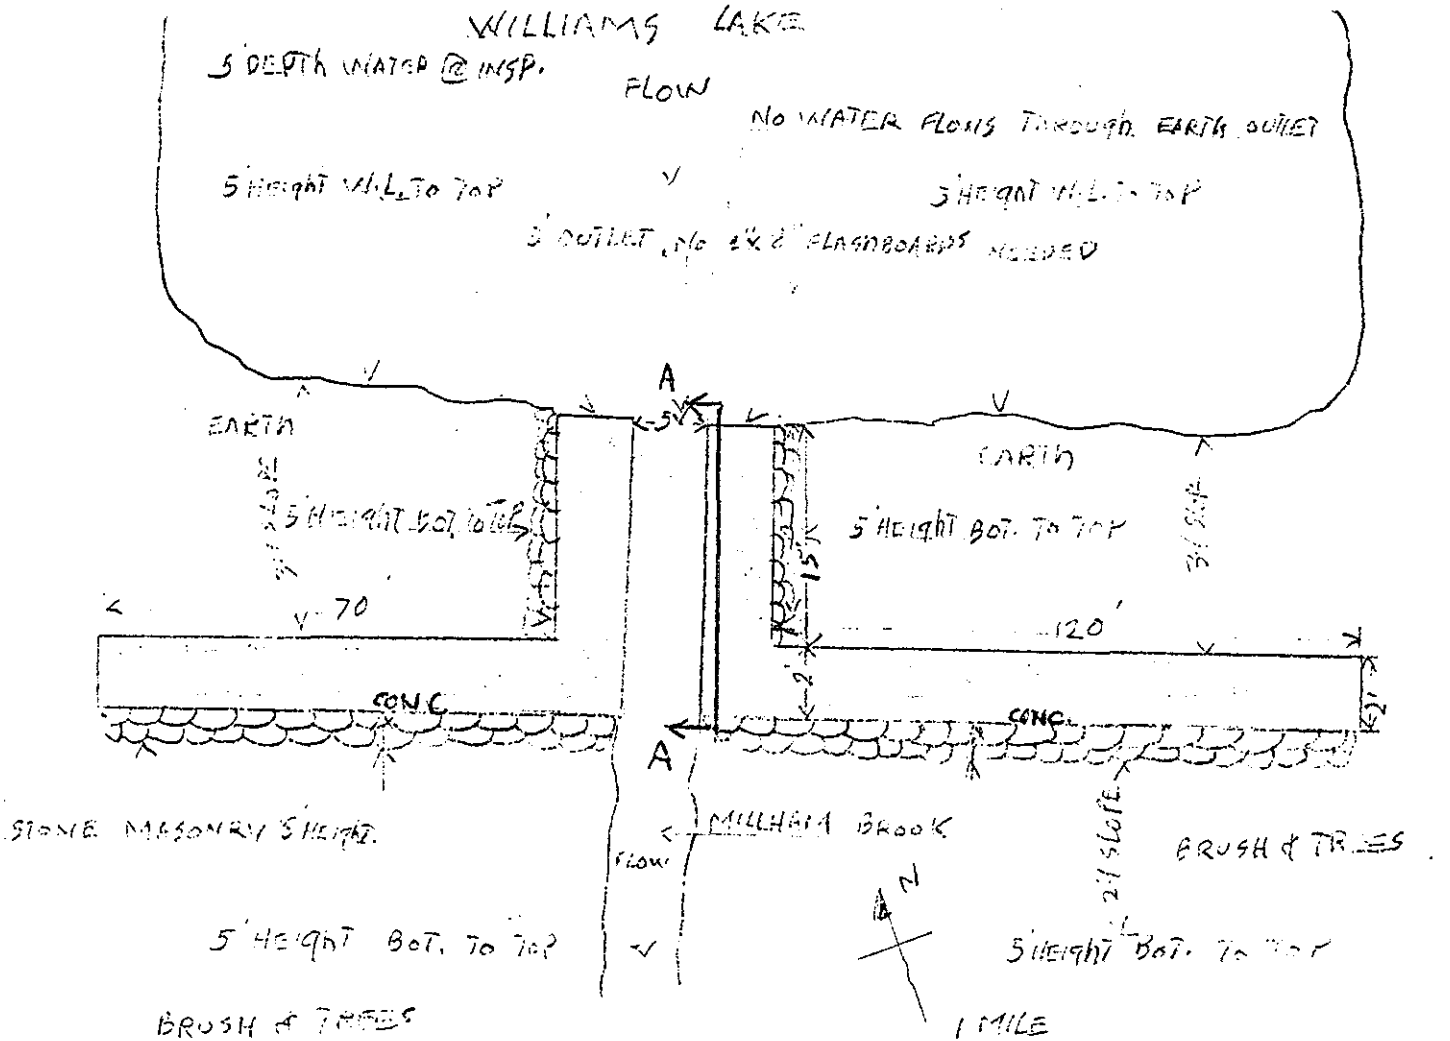 WILLIAMS LAKE
5' DEPTH WATER @ INSP.
FLOW
NO WATER FLOWS THROUGH EARTH OUTLET
5' HEIGHT W.L. TO TOP
5' HEIGHT W.L. TO TOP
5' OUTLET, No FLASHBOARDS NEEDED
A
5'
EARTH
EARTH
5' HEIGHT BOT. TO TOP
5' HEIGHT BOT. TO TOP
3:1 SLOPE
15'
70'
120'
2'
2'
CONC
CONC.
A
STONE MASONRY 5' HEIGHT.
MILLHAM BROOK
FLOW
2:1 SLOPE
BRUSH & TREES
N
5' HEIGHT BOT. TO TOP
5' HEIGHT BOT. TO TOP
BRUSH & TREES
1 MILE